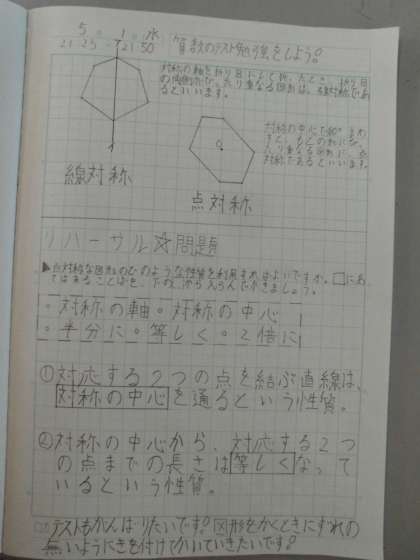 5 ○ 1 ○ 水
21:25 → 21:50
算数のテスト勉強をしよう!
対称の軸を折り目にして折ったとき、折り目
の両側がぴったり重なる図形は、線対称であ
るといいます。
線対称
対称の中心で180°まわ
すと、もとの形にぴっ
たり重なる図形は、点
対称であるといいます。
O
点対称
リハーサル☆問題
▶点対称な図形のどのような性質を利用すればよいですか。□にあ
てはまることばを、下の から えらんでかきましょう。
・対称の軸・対称の中心
・半分に・等しく・2倍に
①対応する2つの点を結ぶ直線は、
対称の中心を通るという性質。
②対称の中心から、対応する2つ
の点までの長さは等しくなって
いるという性質。
テストもがんばりたいです!図形をかくときにずれの
無いようにきを付けてかいていきたいです!